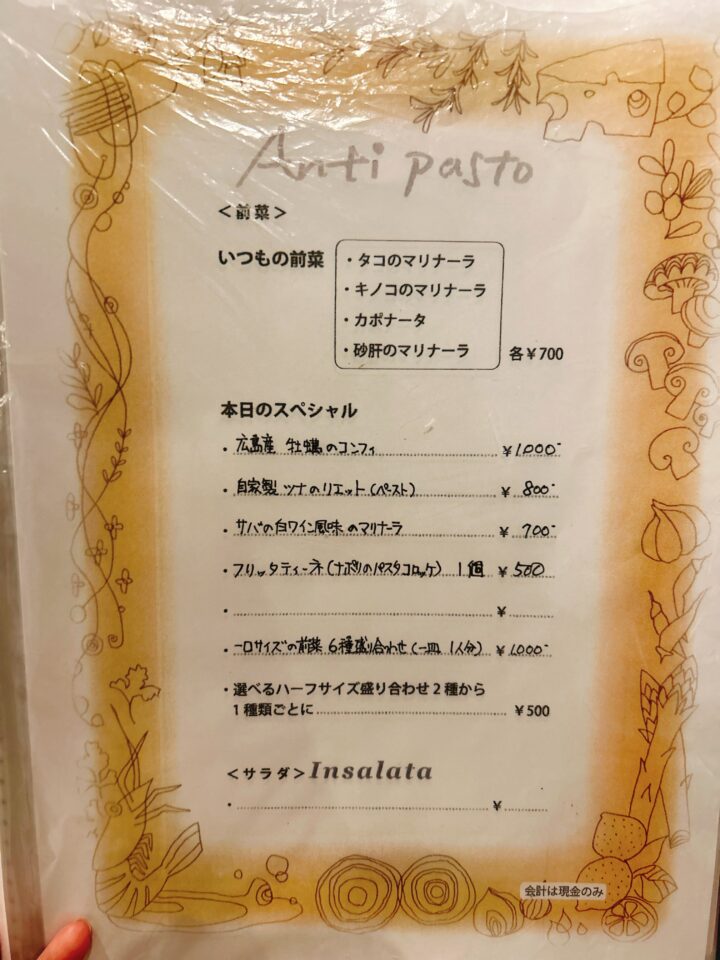 Anti pasto
＜前菜＞
いつもの前菜
・タコのマリナーラ
・キノコのマリナーラ
・カポナータ
・砂肝のマリナーラ
各￥700
本日のスペシャル
・広島産 牡蠣のコンフィ ￥1,000-
・自家製 ツナのリエット(ペースト) ￥800-
・サバの白ワイン風味のマリナーラ ￥700-
・フリッタティーネ(ナポリのパスタコロッケ) 1個 ￥500
・ ￥
・一口サイズの前菜 6種盛り合わせ(一皿 1人分) ￥1,000-
・選べるハーフサイズ盛り合わせ2種から
1種類ごとに ￥500
＜サラダ＞Insalata
・ ￥
会計は現金のみ